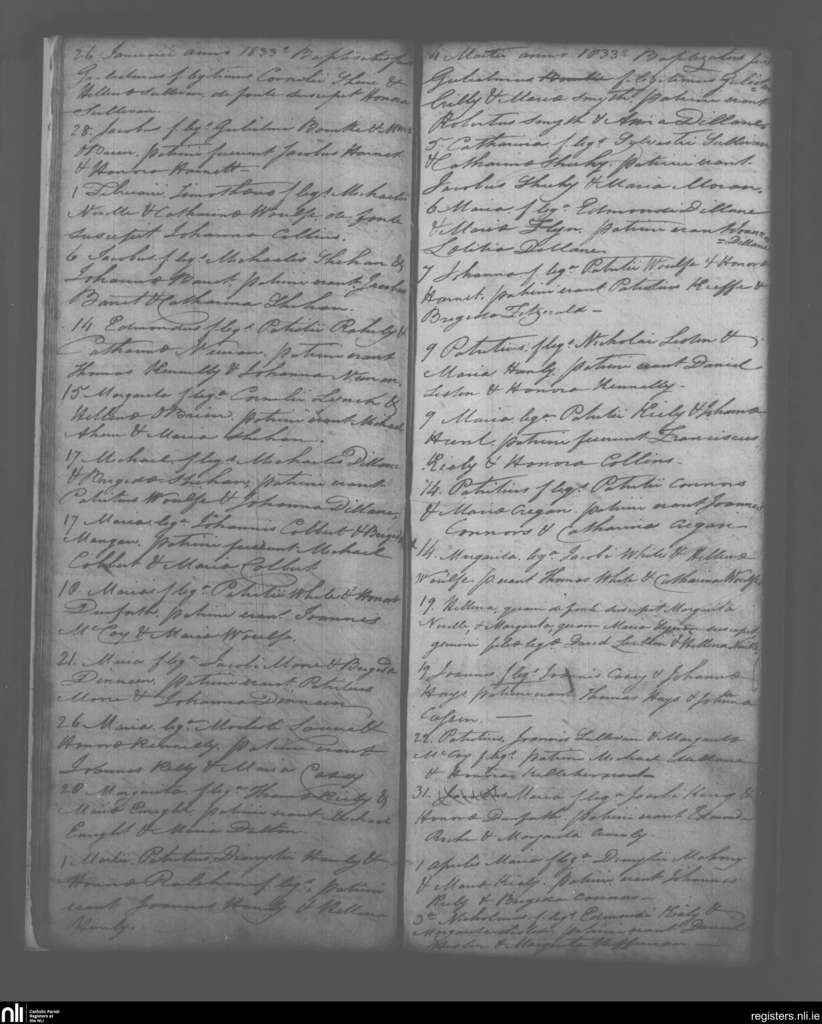 26 Januarii anno 1833° Baptisatus fuit
Gulielmus f legitimus Cornelii Shine &
Hellenæ Sullivan, de fonte suscepit Honora
Sullivan.
28. Jacobus f legs Gulielmi Bourke &
OBrien. patrini fuerunt Jacobus Harnet
& Honora Harnett
1 Februarii Timotheus f legs Michaelis
Neville & Catharinæ Woulfe de fonte
suscepit Johanna Collins.
6 Jacobus f legs Michaelis Shehan &
Johannæ Barret. patrini erant Jacobus
Barret & Catharina Shehan.
14 Edmondus f legs Patritii Rahely &
Catharinæ Niunan. patrini erant
Thomas Kennelly & Johanna Niunan.
15 Margarita f lega Cornelii Lynch &
Hellenæ OBrien. patrini erant Michael
Ahern & Maria Shehan.
17. Michael f legs Michaelis Dillane
& Brigidæ Shehan, patrini erant
Patritius Woulfe & Johanna Dillane.
17 Maria lega Johannis Colbert & Brigidæ
Mangan. patrini fuerunt Michael
Colbert & Maria Colbert
18. Maria f lega Patritii White & Honoræ
Danforth. patrini erant Joannes
McCoy & Maria Woulfe.
21. Maria f lega Jacobi More & Brigidæ
Dinneen. patrini erant Patritius
More & Johanna Dinneen
26 Maria lega
Honoræ Kennelly. patrini erant
Joannes Kelly & Maria Casey
28 Margarita f lega Thomæ Kiely &
Mariæ Enright, patrini erant Michael
Enright & Maria Dalton
1 Martii Patritius, Dionysii Hanly &
Honoræ Ralehan f legs. patrini
erant Joannes Hanly & Hellena
Hanly.
4 Martii anno 1833° Baptizatus fuit
Gulielmus f legitimus Gulielmi
Cuilly & Mariæ Smyth. patrini erant
Robertus Smyth & Anna Dillane
5. Catharina f lega Sylvestri Sullivan
& Catharinæ Sheehy. patrini erant
Jacobus Sheehy & Maria Moran.
6 Maria f lega Edmondi Dillane
& Mariæ Flyn. patrini erant Joannes
Dillane
Letitia Dillane
7 Johanna f lega Patritii Woulfe & Honoræ
Harnet. patrini erant Patritius Kieffe &
Brigida Fitzgerald —
9 Patritius. f legs Nicholai Liston &
Mariæ Hanly. patrini erant Daniel
Liston & Honora Kennelly.
9 Maria lega Patritii Kiely & Johannæ
Hunt. patrini fuerunt Franciscus
Kiely & Honora Collins.
14. Patritius f legs Patritii Connors
& Mariæ Cregan. patrini erant Joannes
Connors & Catharina Cregan
14. Margarita, lega Jacobi White & Hellenæ
Woulfe p erant Thomas White & Catharina Woulfe
19. Hellena, quam de fonte suscepit Margarita
Neville, & Margarita, quam Maria suscepit,
gemini filiæ legæ David & Hellenæ
19 Joannes f legs Joannis Casey & Johannæ
Hays patrini erant Thomas Hays & Johanna
22. Patritius, Joannis Sullivan & Margaritæ
McCoy f legs patrini Michael
& Honora
31. Maria f lega Jacobi Henry &
Honoræ Danforth. patrini erant Edmondus
Roche & Margarita
1 Aprilis Maria f lega Dionysii Mahony
& Mariæ Kiely. patrini erant Johannes
Kiely & Brigida Connors
3° Nicholaus f legs Edmondi Kiely &
Margaritæ Liston, patrini erant Daniel
& Margarita Heffernan
nli
Catholic Parish
Registers at
the NLI
registers.nli.ie